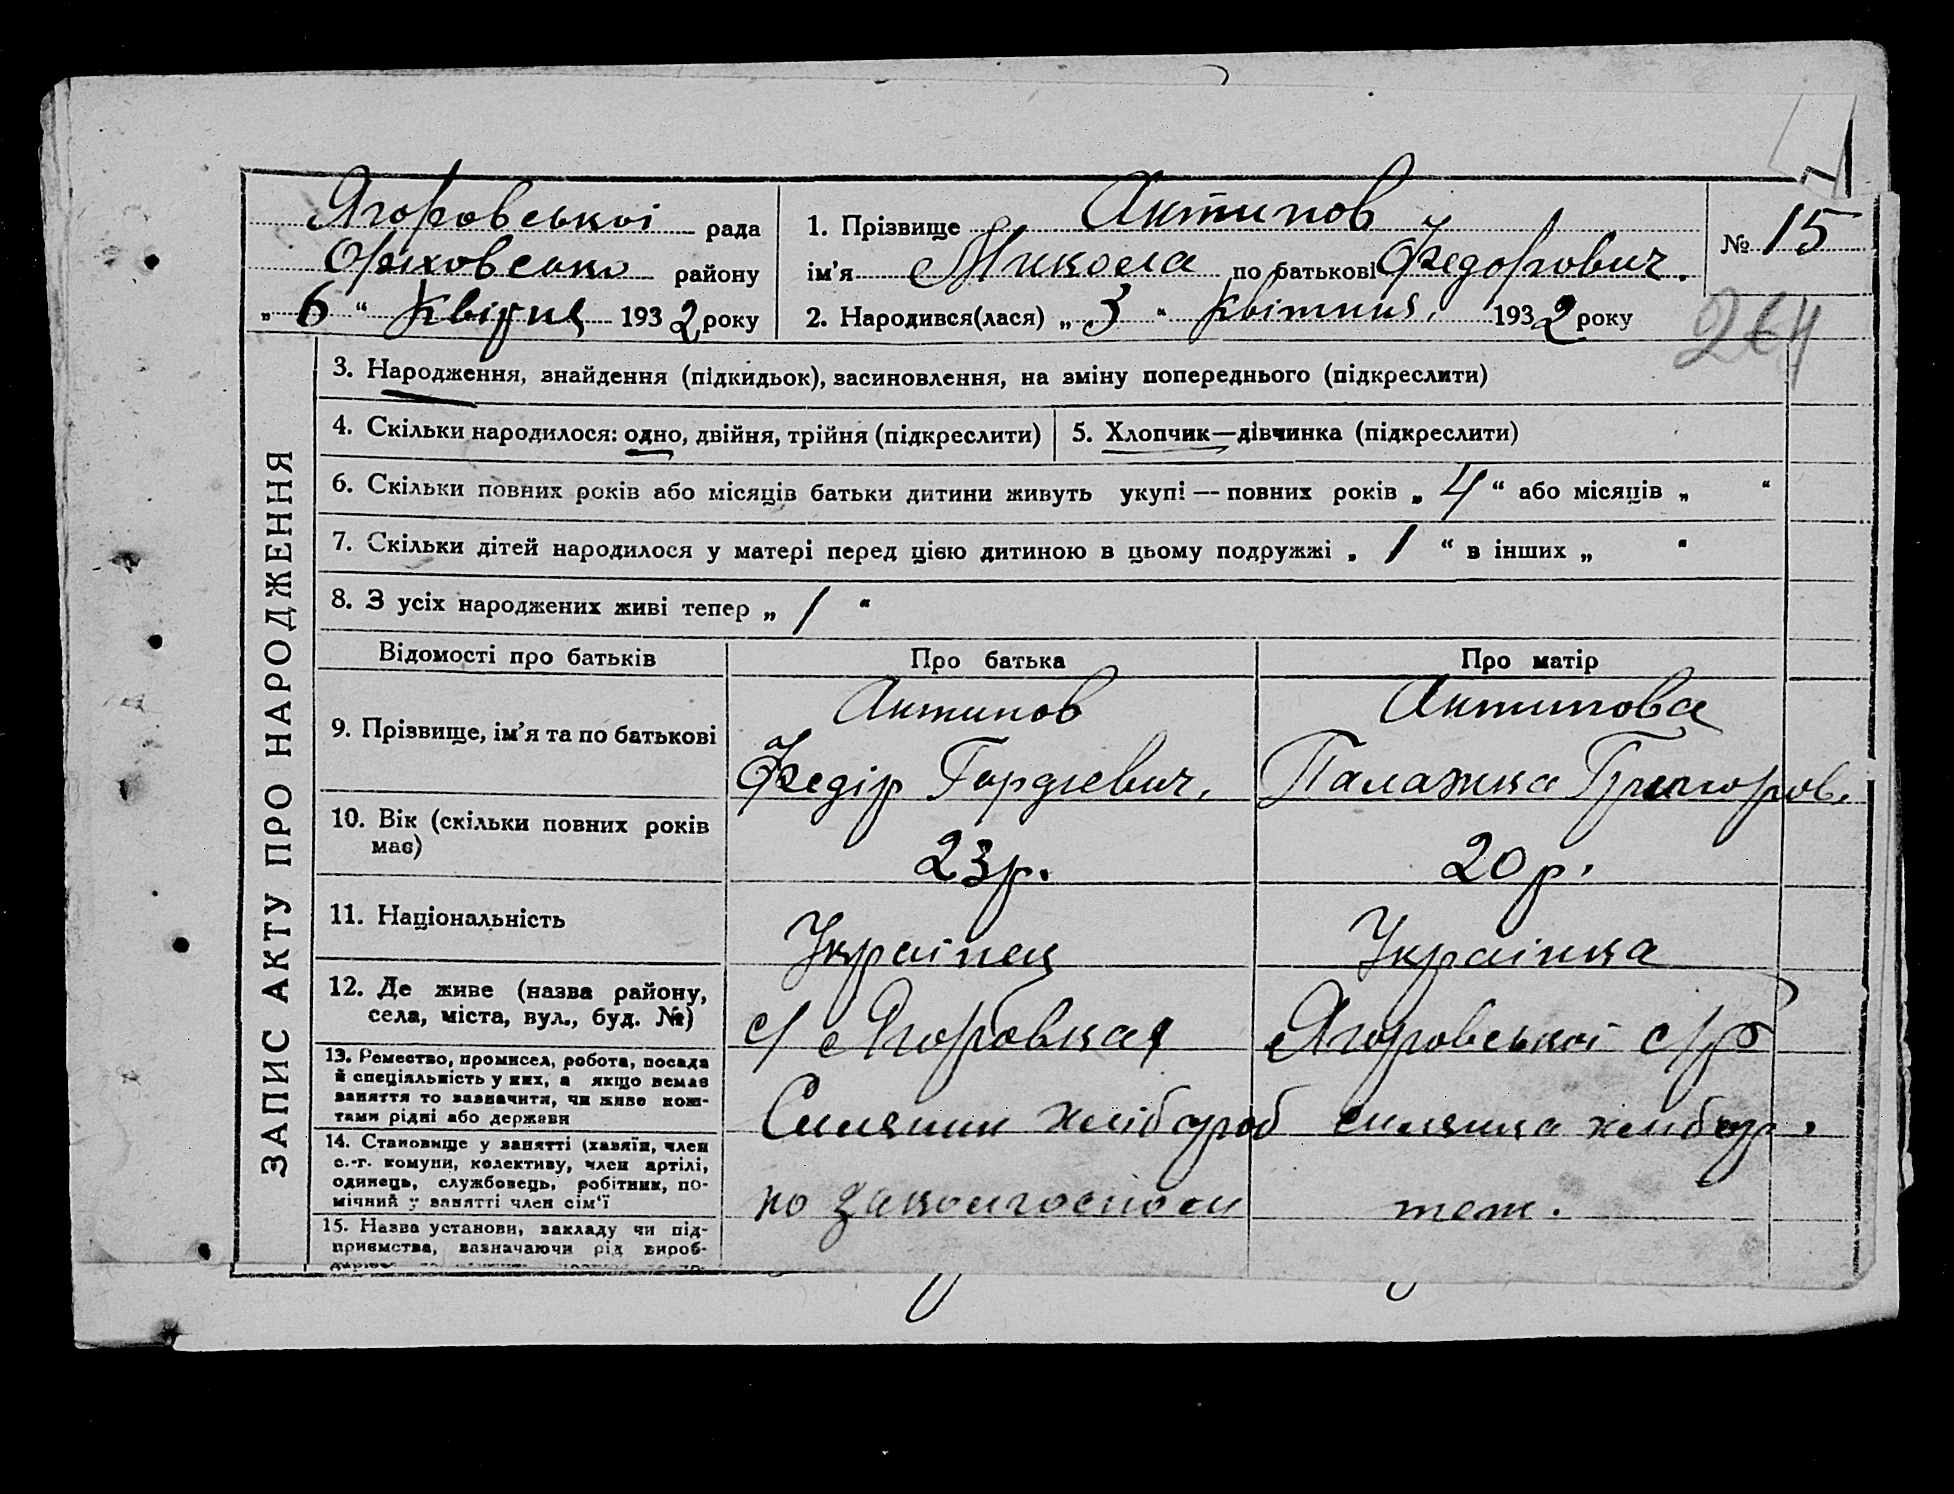 Ягоровської рада
Оріховсько району
„ 6 “ Квітня 1932 року
1. Прізвище Антипов
ім’я Микола по батькові Федорович.
2. Народився(лася) „ 3 “ Квітния. 1932 року
№ 15
264
ЗАПИС АКТУ ПРО НАРОДЖЕННЯ
3. Народження, знайдення (підкидьок), засиновлення, на зміну попереднього (підкреслити)
4. Скільки народилося: одно, двійня, трійня (підкреслити)
5. Хлопчик—дівчинка (підкреслити)
6. Скільки повних років або місяців батьки дитини живуть укупі — повних років „ 4 “ або місяців „ “
7. Скільки дітей народилося у матері перед цією дитиною в цьому подружжі „ 1 “ в інших „ “
8. З усіх народжених живі тепер „ 1 “
Відомості про батьків
Про батька
Про матір
9. Прізвище, ім’я та по батькові
Антипов
Федір Гордієвич.
Антипова
Палажка Григоров.
10. Вік (скільки повних років
має)
23р.
20р.
11. Національність
Українец
Українка
12. Де живе (назва району,
села, міста, вул., буд. №)
с/ Ягоровкая
Ягоровської с/р
13. Ремество, промисел, робота, посада
й спеціяльність у них, а якщо немає
заняття то зазначити, чи живе кош-
тами рідні або держави
Силянин хлібороб
силянка хлибор.
14. Становище у занятті (хазяїн, член
с.-г. комуни, колективу, член артілі,
одинець, службовець, робітник, по-
мічний у занятті член сім‘ї
теж.
15. Назва установи, закладу чи під-
приємства, зазначаючи рід вироб-